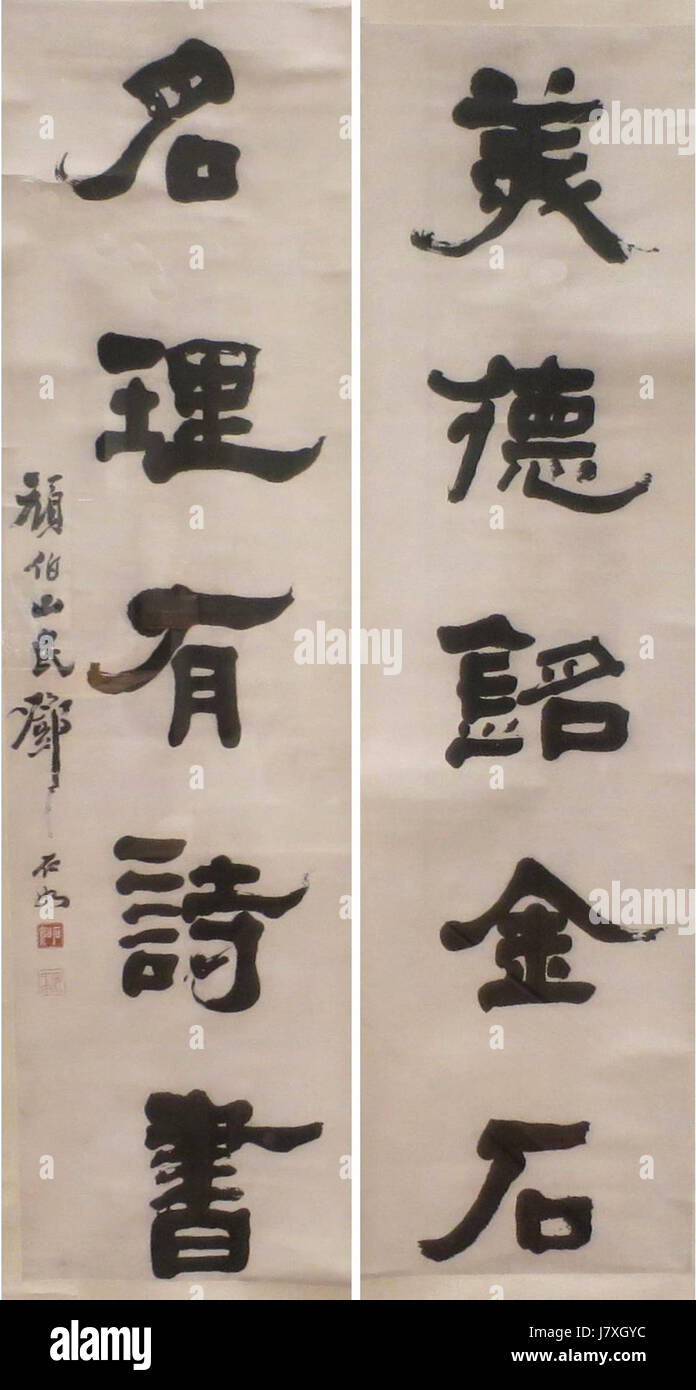 美德銘金石
名理有詩書
頑伯山民鄧石如
alamy
Image ID: J7XGYC
www.alamy.com